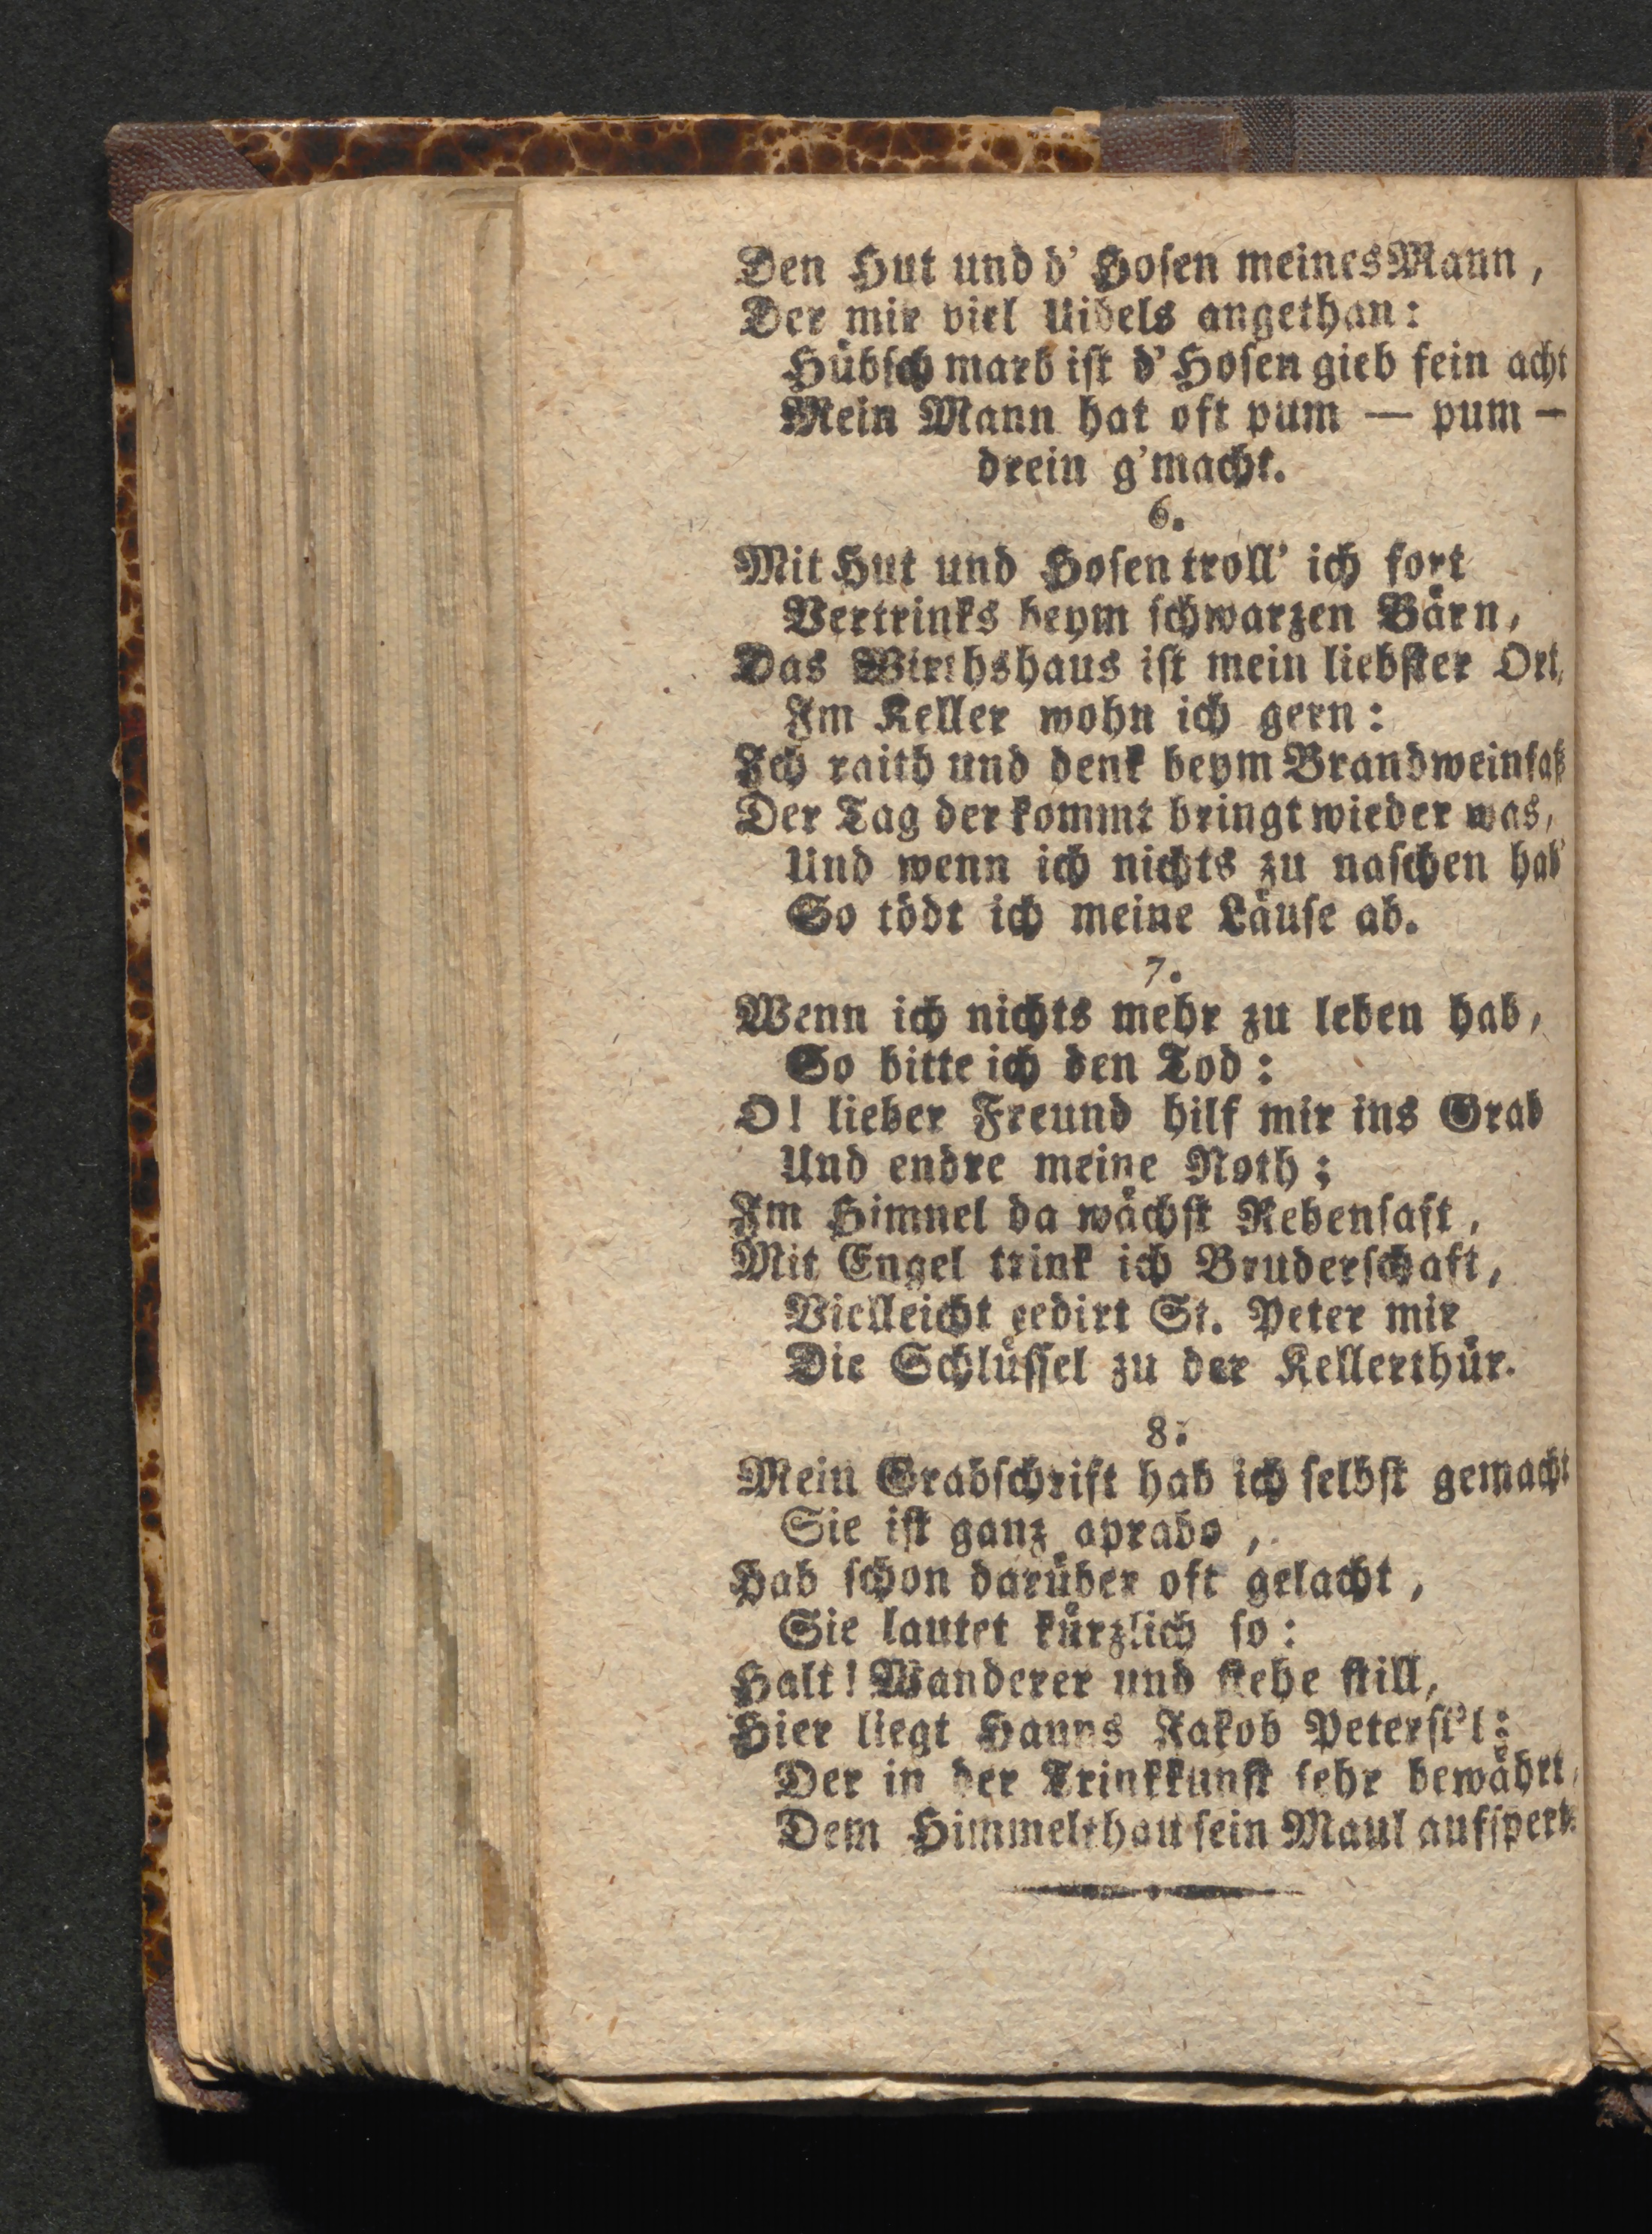 Den Hut und d' Hosen meines Mann,
Der mir viel Uibels angethan:
Hübsch marb ist d' Hosen gieb fein acht
Mein Mann hat oft pum — pum —
drein g'macht.
6.
Mit Hut und Hosen troll' ich fort
Vertrinks beym schwarzen Bärn,
Das Wirthshaus ist mein liebster Ort,
Im Keller wohn ich gern:
Ich raith und denk beym Brandweinfaß
Der Tag der kommt bringt wieder was,
Und wenn ich nichts zu naschen hab'
So tödt ich meine Läuse ab.
7.
Wenn ich nichts mehr zu leben hab,
So bitte ich den Tod:
O! lieber Freund hilf mir ins Grab
Und endre meine Noth;
Im Himnel da wächst Rebensaft,
Mit Engel trink ich Bruderschaft,
Vielleicht cedirt St. Peter mir
Die Schlüssel zu der Kellerthür.
8.
Mein Grabschrift hab ich selbst gemacht
Sie ist ganz aprabo,
Hab schon darüber oft gelacht,
Sie lautet kürzlich so:
Halt! Wanderer und stehe still,
Hier liegt Hanns Jakob Petersi'l:
Der in der Trinkkunst sehr bewährt,
Dem Himmelthau sein Maul aufsperrt